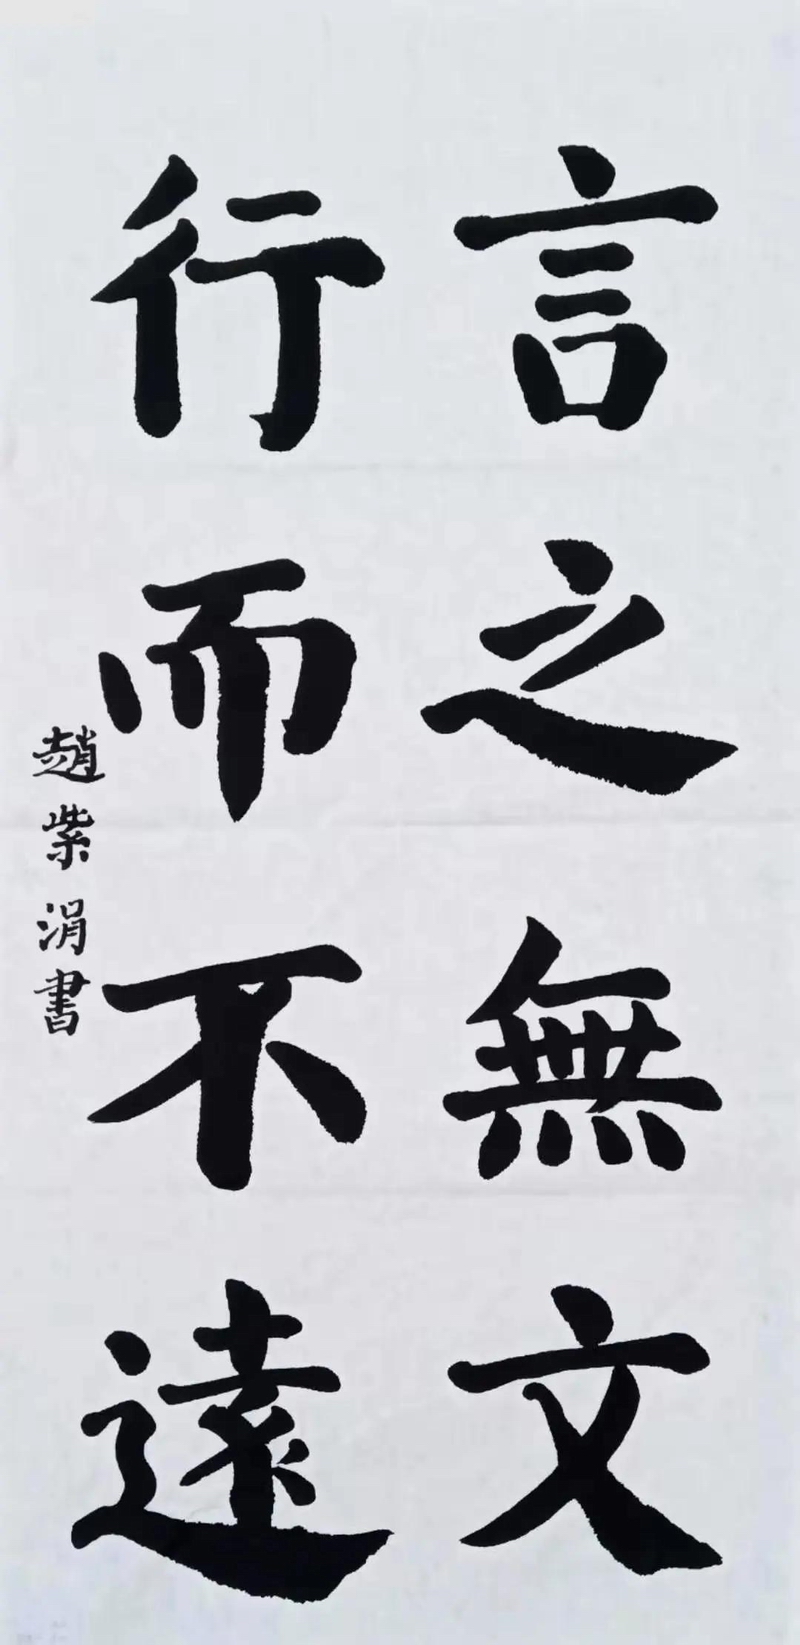 言之無文
行而不遠
趙紫涓書